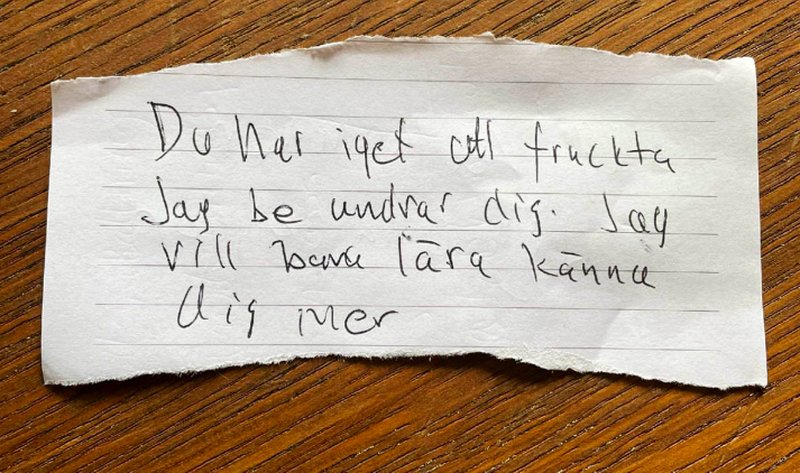 Du har iget att fruckta
Jag be undrar dig. Jag
vill bara lära känna
dig mer